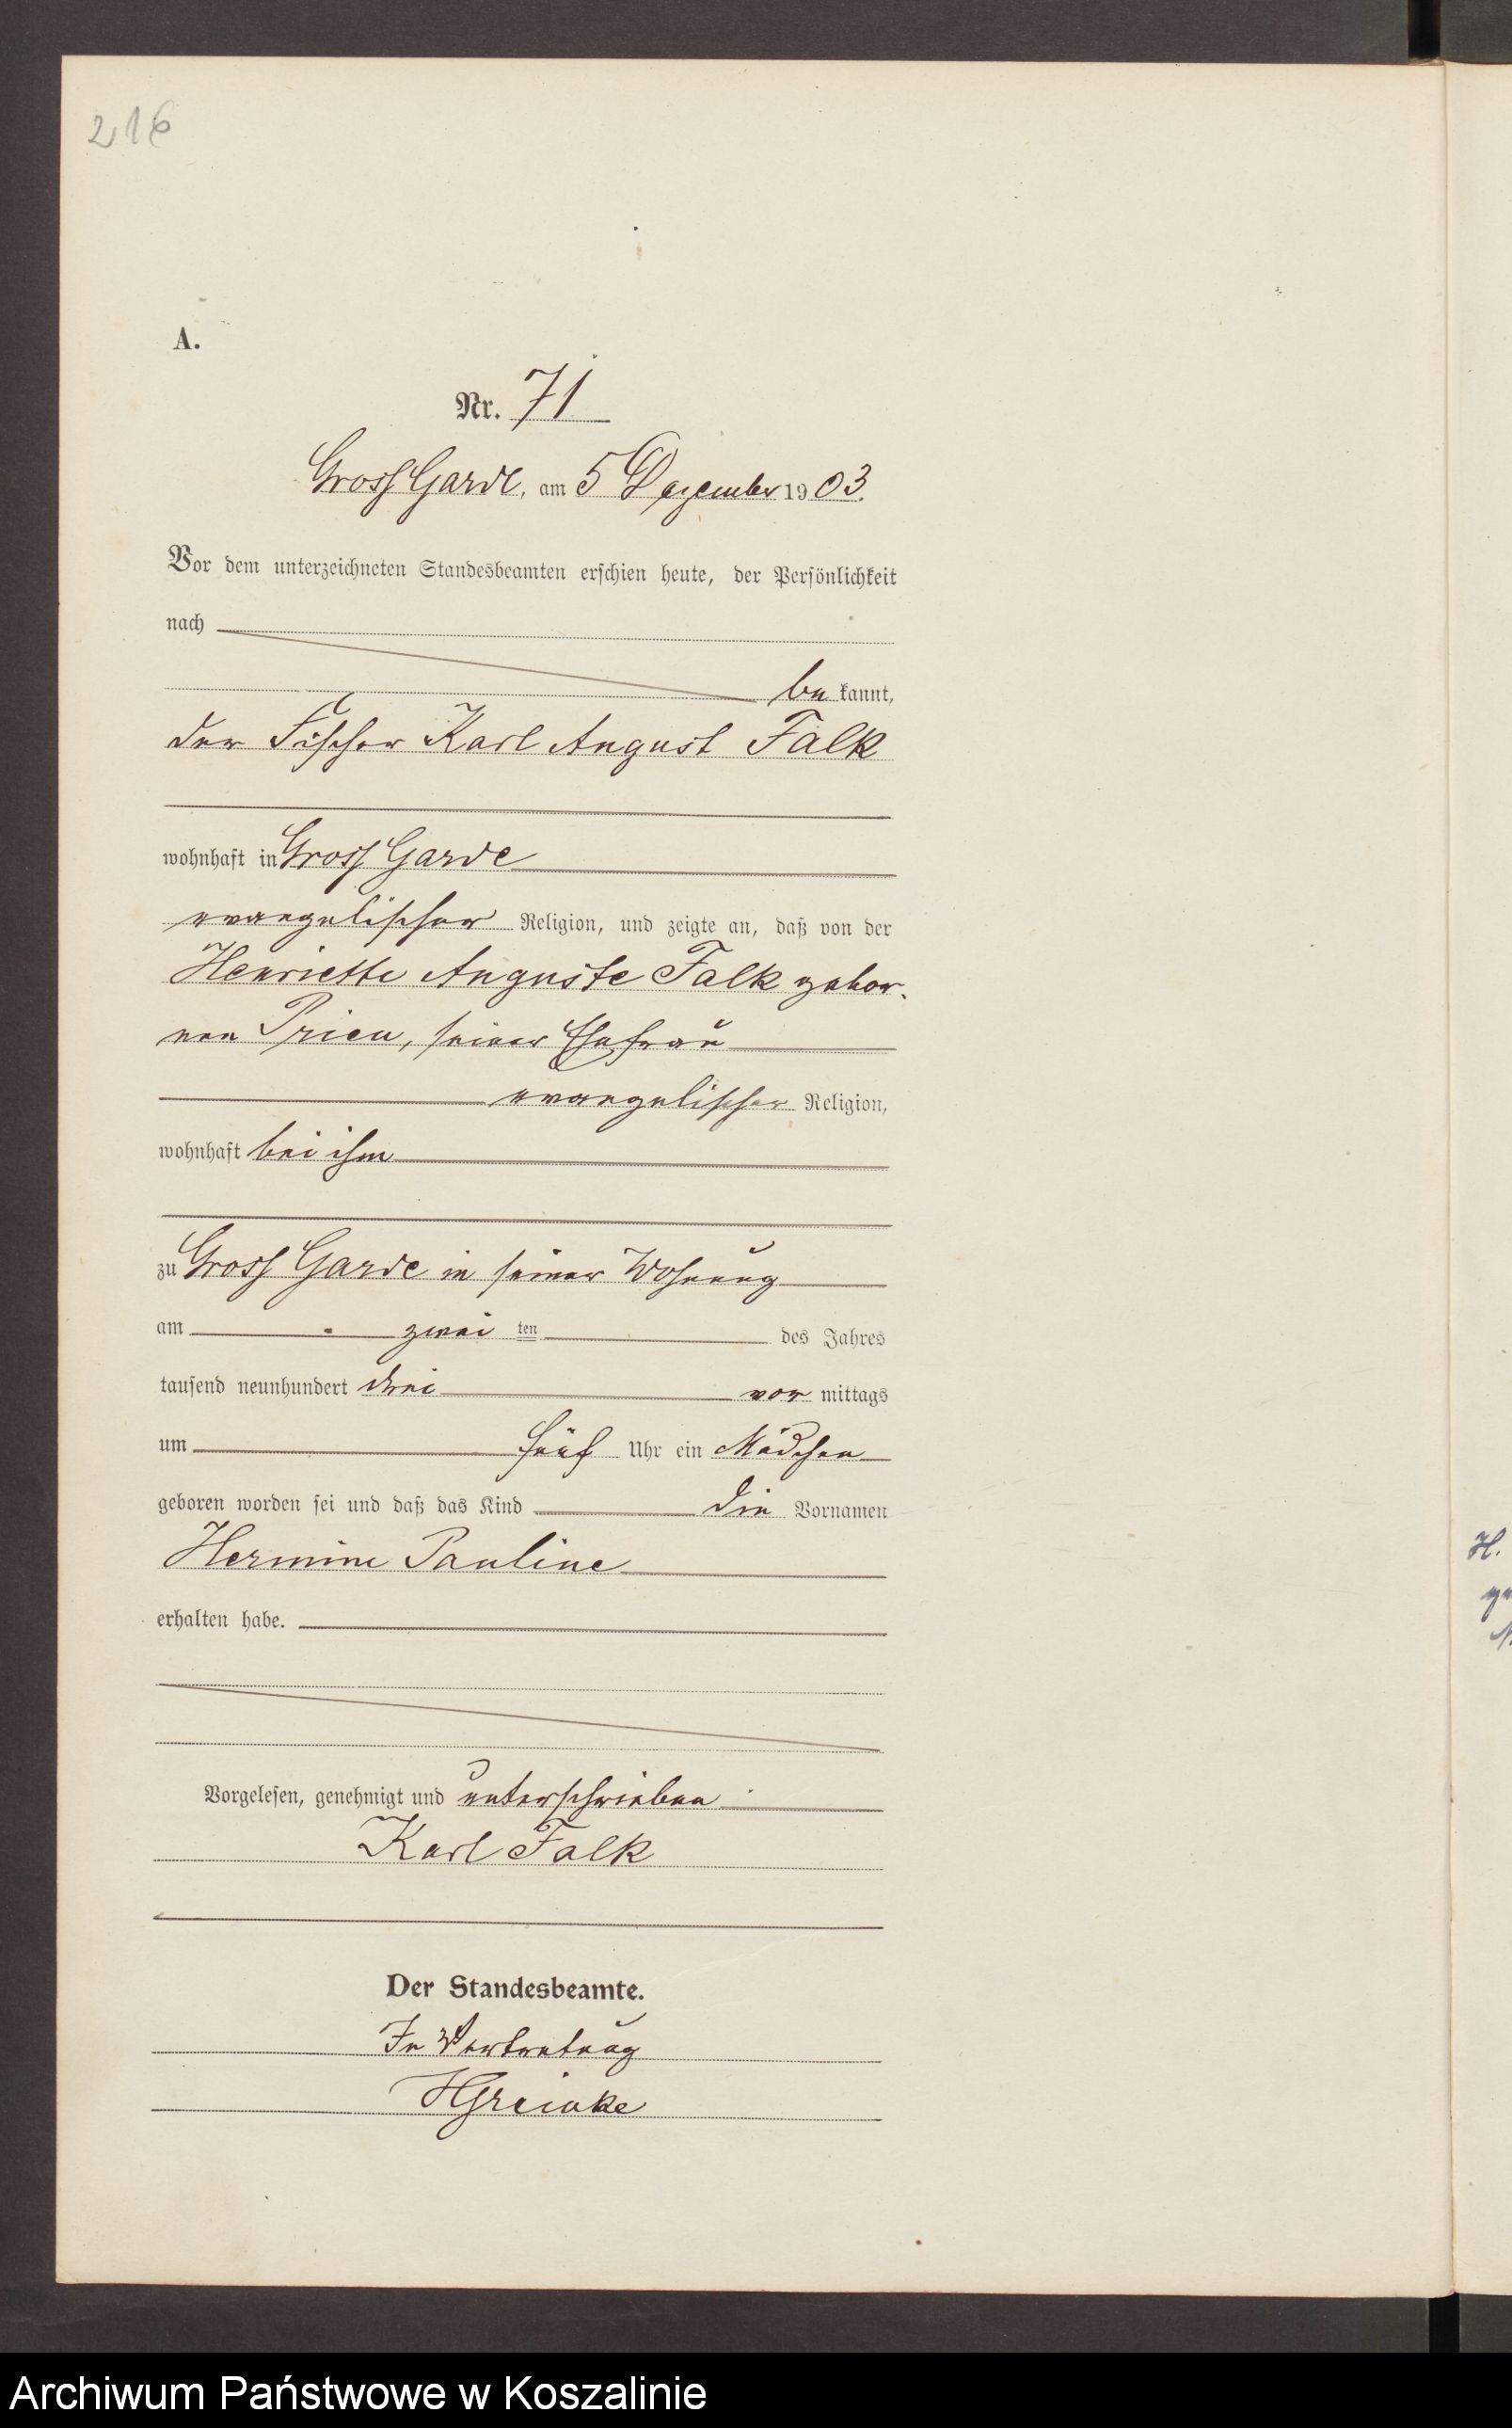 216
A.
Nr. 71
Gross Garde, am 5 Dezember 1903.
Vor dem unterzeichneten Standesbeamten erschien heute, der Persönlichkeit
nach
be kannt,
der Fischer Karl August Falk
wohnhaft in Gross Garde
evangelischer Religion, und zeigte an, daß von der
Henriette Auguste Falk gebor-
nen Prien, seiner Ehefrau
evangelischer Religion,
wohnhaft bei ihm
zu Gross Garde in seiner Wohnung
am zwei ten des Jahres
tausend neunhundert drei vor mittags
um fünf Uhr ein Mädchen
geboren worden sei und daß das Kind die Vornamen
Hermine Pauline
erhalten habe.
Vorgelesen, genehmigt und unterschrieben
Karl Falk
Der Standesbeamte.
In Vertretung
HGreinke
H.
Archiwum Państwowe w Koszalinie